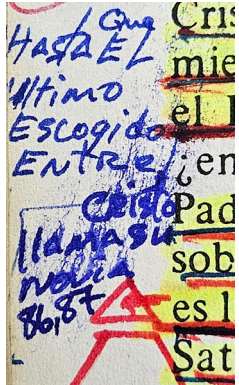 ¡Que
Hasta EL
Ultimo
Escogido
Entre,
Cristo
llama su
novia
86,87
Cris
mie
el
¿en
Pad
sob
es l
Sat